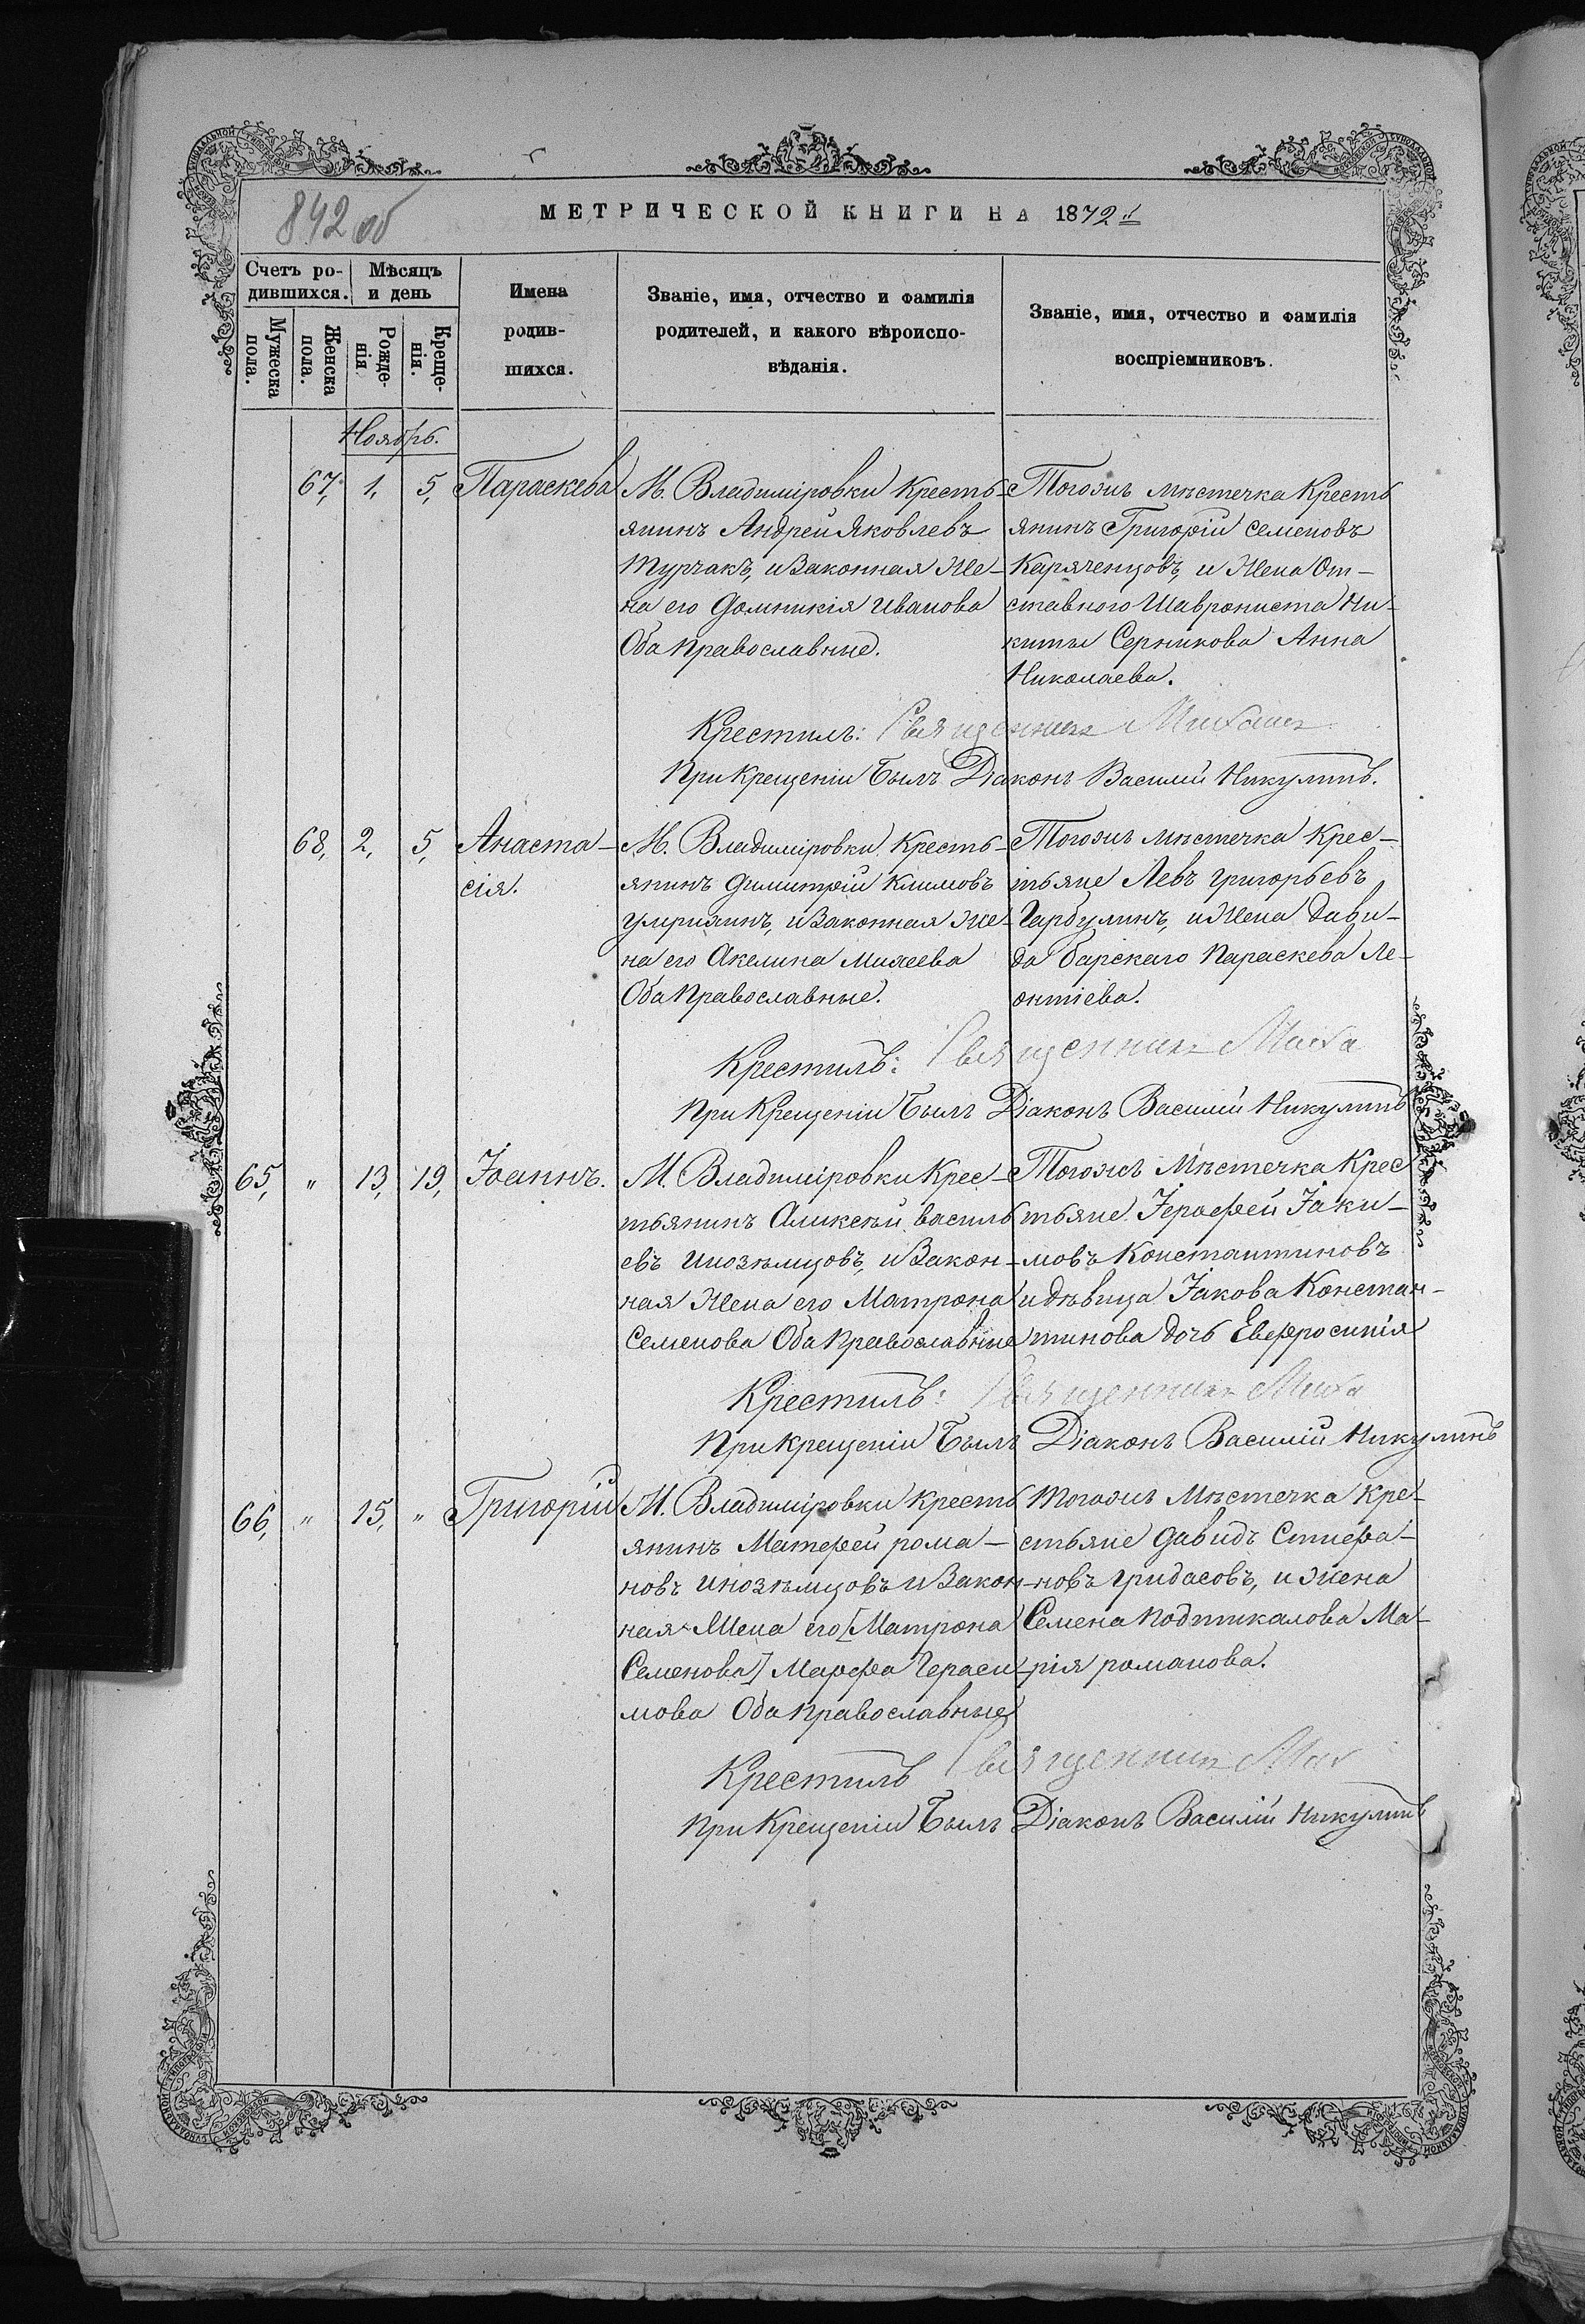 842 об
МЕТРИЧЕСКОЙ КНИГИ НА 1872 г.
Счетъ ро-
дившихся.
Мѣсяцъ
и день
Мужеска
пола.
Женска
пола.
Рожде-
нія
Креще-
нія.
Имена
родив-
шихся.
Званіе, имя, отчество и фамилія
родителей, и какого вѣроиспо-
вѣданія.
Званіе, имя, отчество и фамилія
воспріемниковъ.
Ноябрь.
67, 1, 5, Параскева
М. Владиміровки Кресть-
янинъ Андрей Яковлевъ
Турчакъ, и Законная Же-
на его Домникія Иванова
Оба Православные.
Тогожъ мѣстечка Кресть
янинъ Григорій Семеновъ
Каряченцовъ, и Жена От-
ставного Шаврониста Ни-
киты Серникова Анна
Николаева.
Крестилъ: Священникъ Михаил
При Крещеніи Былъ Діаконъ Василій Никулинъ.
68, 2, 5, Анаста-
сія.
М. Владиміровки Кресть-
янинъ Димитрій Климовъ
и Законная Же-
на его Акелина Михеева
Оба Православные.
Тогожъ мѣстечка Крес-
тьяне Левъ Григорьевъ
Гарбулинъ, и Жена Дави-
да Барскаго Параскева Ле-
онтіева.
Крестилъ: Священникъ Миха
При Крещеніи Былъ Діаконъ Василій Никулинъ
65, " 13, 19, Іоаннъ.
М. Владиміровки Крес-
тьянинъ Аликсѣй Василь
евъ Инозѣмцовъ, и Закон-
ная Жена его Матрона
Семенова Оба Православные
Тогожъ Мѣстечка Крес
тьяне Іерофей Іаки-
мовъ Константиновъ
и дѣвица Іакова Констан-
тинова дочь Евфросинія
Крестилъ: Священникъ Миха
При Крещеніи Былъ Діаконъ Василій Никулинъ
66, " 15, " Григорій
М. Владиміровки Кресть
янинъ Матфей Рома-
новъ Инозѣмцовъ и Закон
ная Жена его [Матрона
Семенова] Марфа Гераси-
мова Оба Православные
Тогожъ Мѣстечка Кре-
стьяне Давидъ Стиефа-
новъ Гридасовъ, и Жена
Семена Подтикалова Ма-
рія Романова.
Крестилъ Священникъ Мих
При Крещеніи Былъ Діаконъ Василій Никулинъ